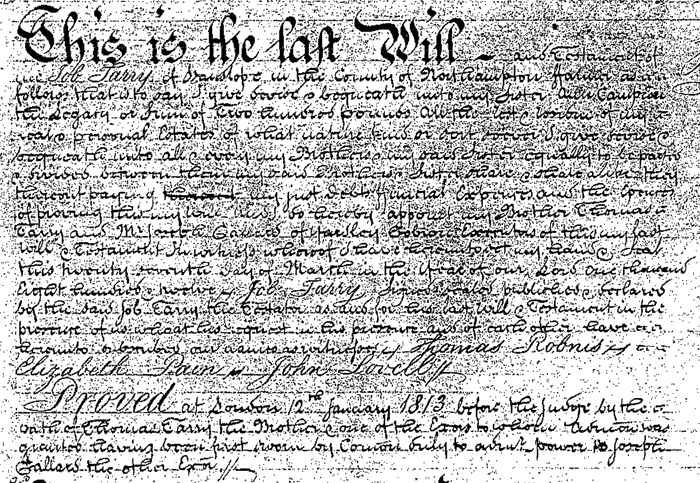 This is the last Will and Testament of
me Job Tarry of Hanslope in the County of Northampton Farmer as
follows that is to say I give devise & bequeath unto my Sister
the Legacy or Sum of Two hundred pounds All the rest residue of my
real & personal Estates of what nature kind or sort soever I give devise &
bequeath unto all & every my Brothers my said Sister equally to be parted
& divided between them my said Brothers Sister share & share alike they
thereout paying thereout my just Debts funeral Expences and the Expences
of proving this my Will And I do hereby appoint my Brother Thomas
Tarry and Mr Joseph Gallard of Yardley Gobion Executors of this my last
Will & Testament In witness whereof I have hereunto set my hand & Seal
this twenty seventh day of March in the Year of our Lord One thousand
Eight hundred & twelve Job Tarry Signed sealed published & declared
by the said Job Tarry the Testator as and for his last Will & Testament in the
presence of us who at his request in his presence and of each other have
hereunto subscribed our names as witnesses Thomas Robnis
Elizabeth Pain John Lovell
Proved at London 12th January 1813 before the Judge by the
oath of Thomas Tarry the Brother & one of the Exors to whom Admon was
granted having been first sworn by Comon duly to admr power to Joseph
Gallard the other Exor